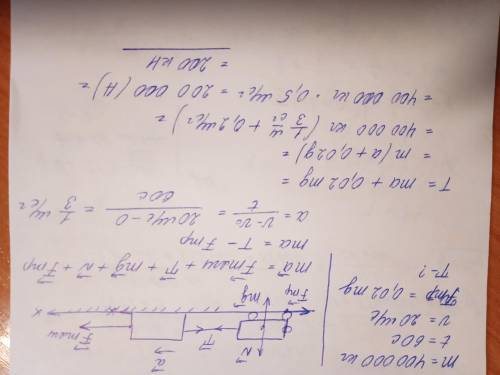 m = 400 000 кг
t = 60 с
v = 20 м/с
Fтр = 0,02 mg
T - ?
N⃗
a⃗
T⃗
Fтяги
mg⃗
Fтр
x
ma⃗ = F⃗тяги + T⃗ + mg⃗ + N⃗ + F⃗тр
ma = T - Fтр
a = (v - v₀)/t = (20 м/с - 0)/60 с = 1/3 м/с²
T = ma + 0,02 mg =
= m(a + 0,02g) =
= 400 000 кг (1/3 м/с² + 0,2 м/с²) =
= 400 000 кг · 0,5 м/с² = 200 000 (Н) =
= 200 кН